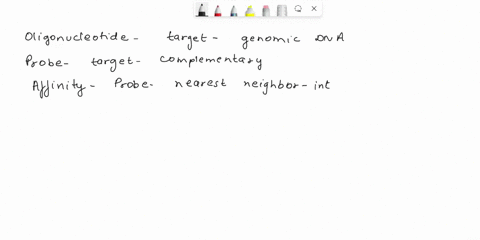 Oligonucleotide - target - genomic DNA
Probe - target - complementary
Affinity - Probe - nearest neighbor - int